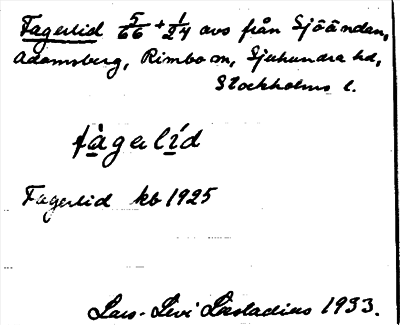 Fagerlid 5/66 + 1/24 avs från Sjöändan,
Adamsberg, Rimbo sn, Sjuhundra hd,
Stockholms l.
fàgalíd
Fagerlid kb 1925
Lars-Levi Læstadius 1933.